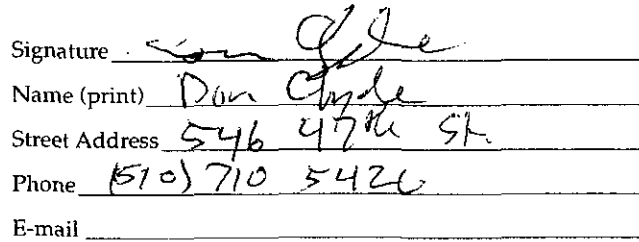 Signature Don Clyde
Name (print) Don Clyde
Street Address 546 47th St.
Phone (510) 710 5426
E-mail